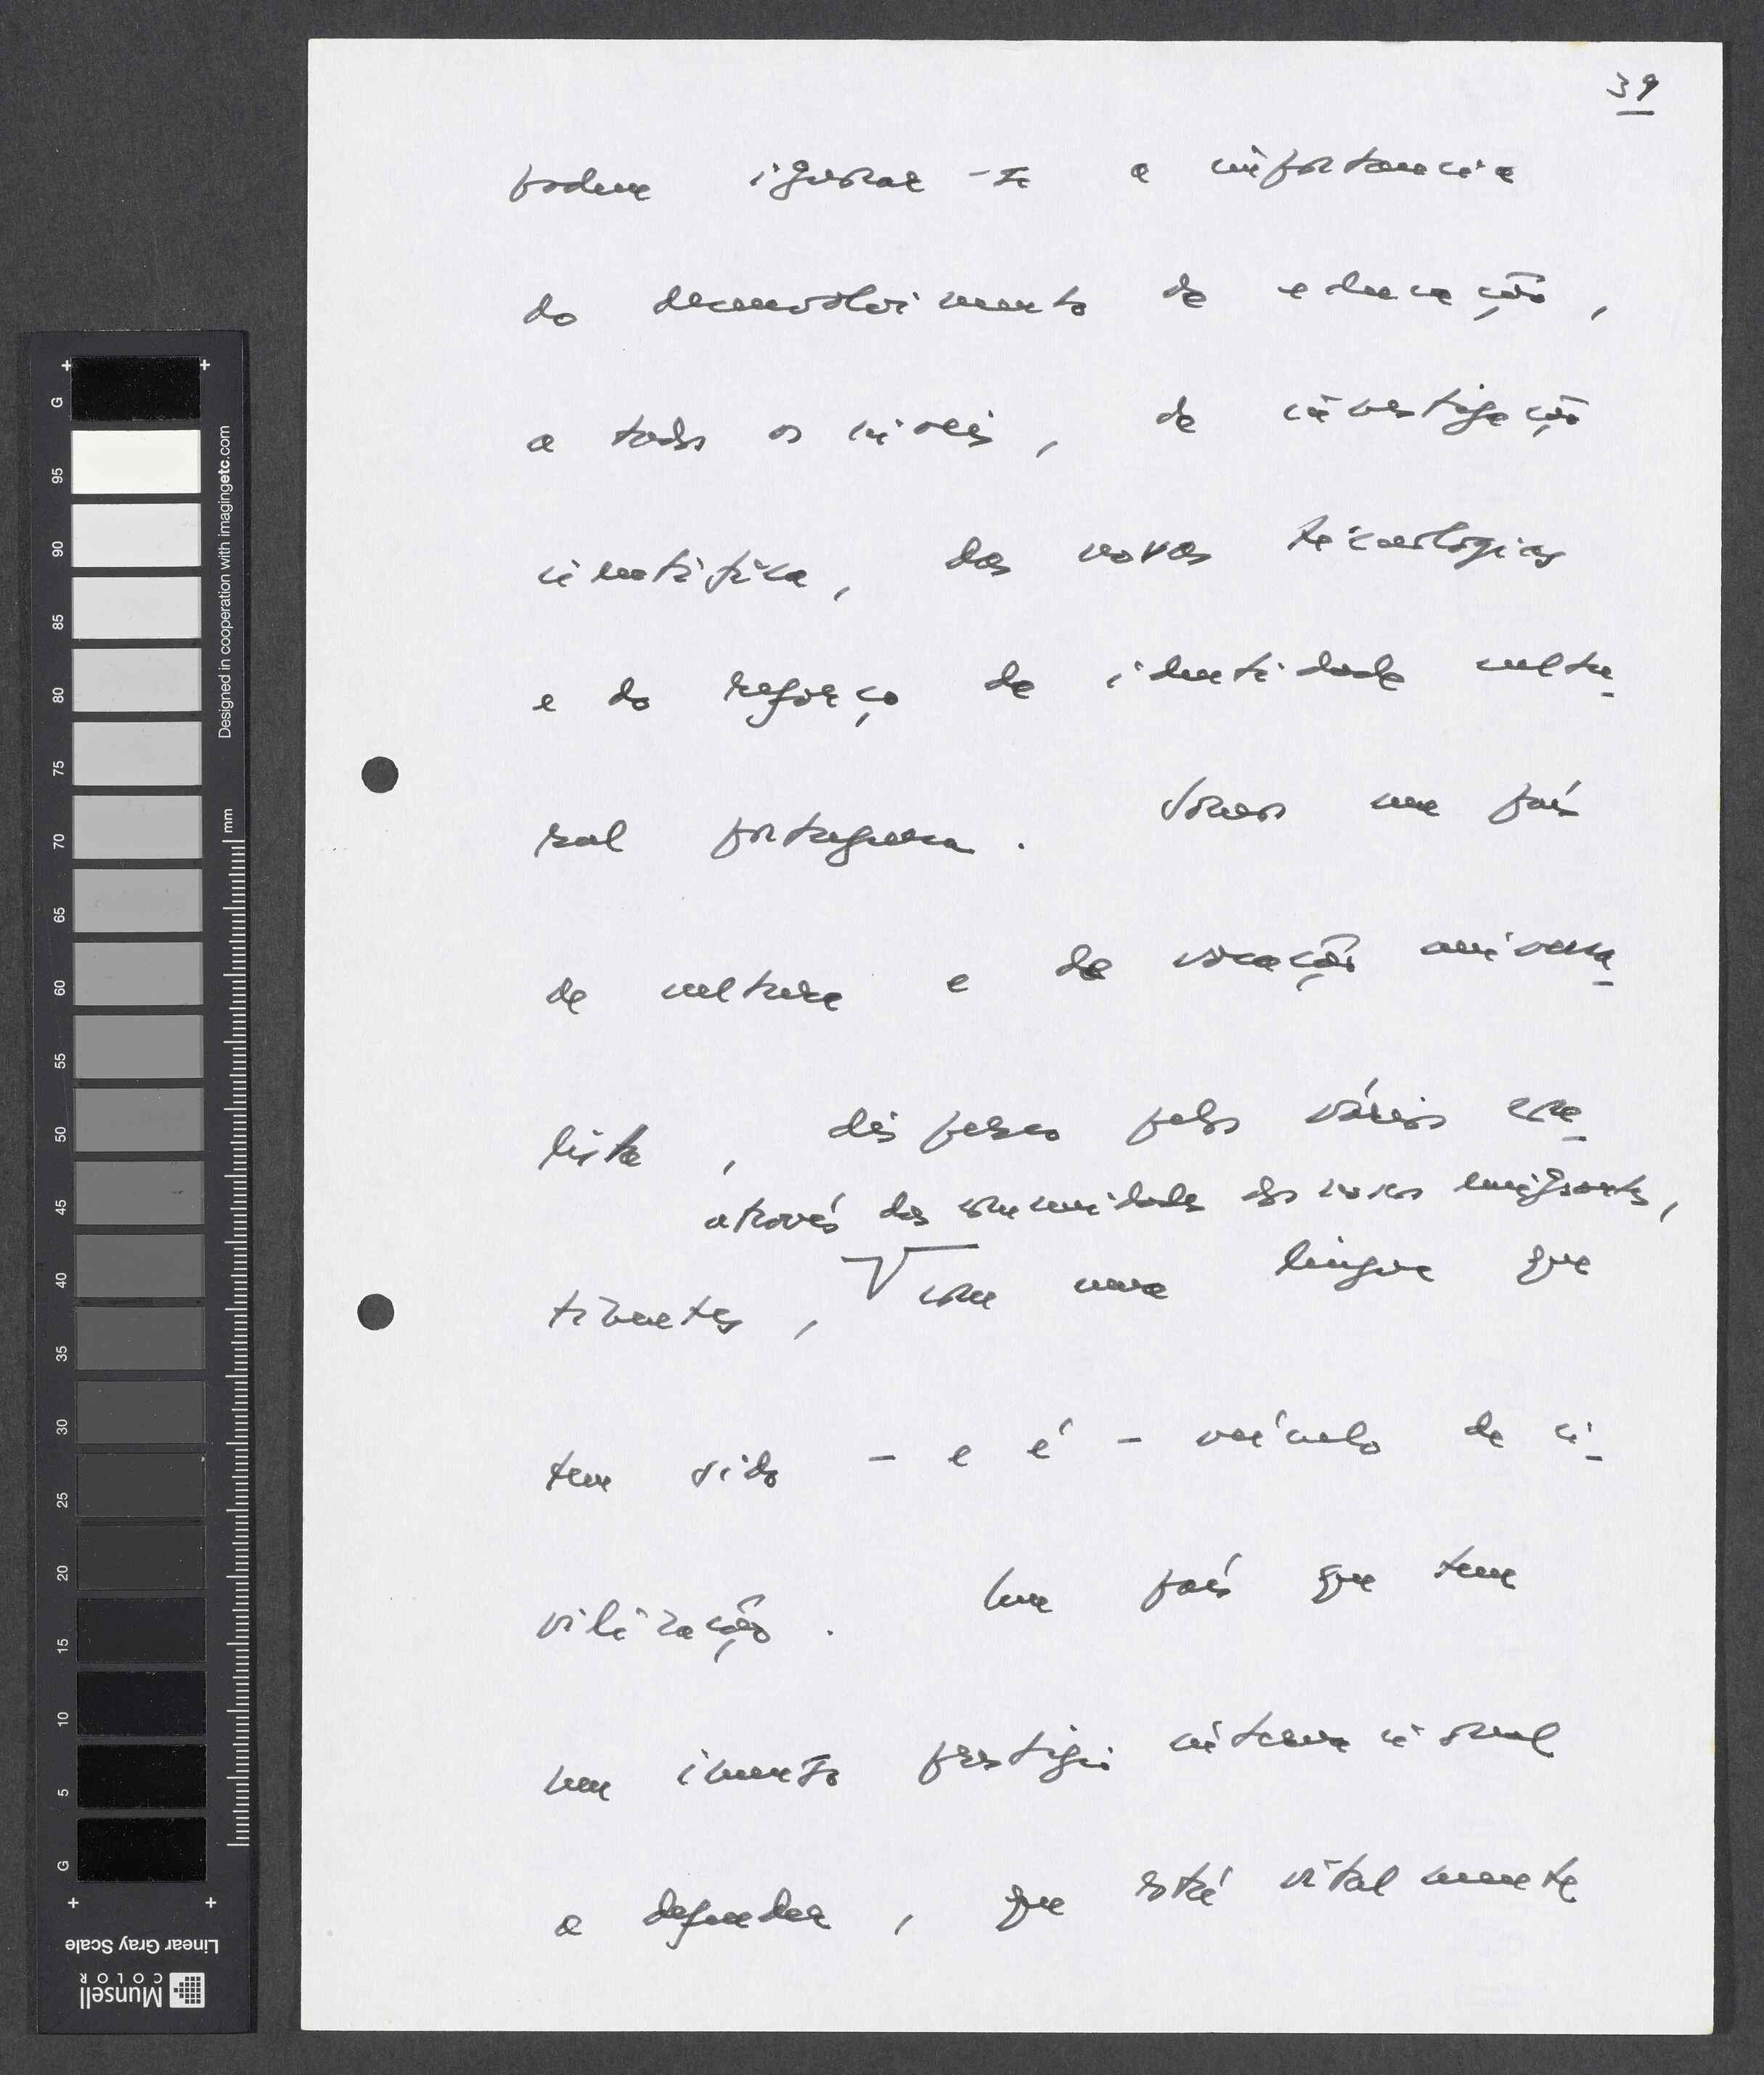 39
podem ignorar-se a importancia
do desenvolvimento da educação,
a todos os níveis, da investigação
cientifica, das novas técnologias
e do reforço da identidade cultu-
ral portuguesa. Somos um país
de cultura e de vocação universa-
lista, disperso pelos vários con-
através das comunidades dos nossos emigrantes,
tinentes, com uma língua que
tem sido - e é - veículo de ci-
vilização. Um país que tem
um imenso prestígio internacional
a defender, que está vitalmente
G 95 90 85 80 75 70 65 60 55 50 45 40 35 30 25 20 15 10 5 G
Designed in cooperation with imagingetc.com
mm
Linear Gray Scale
Munsell
COLOR